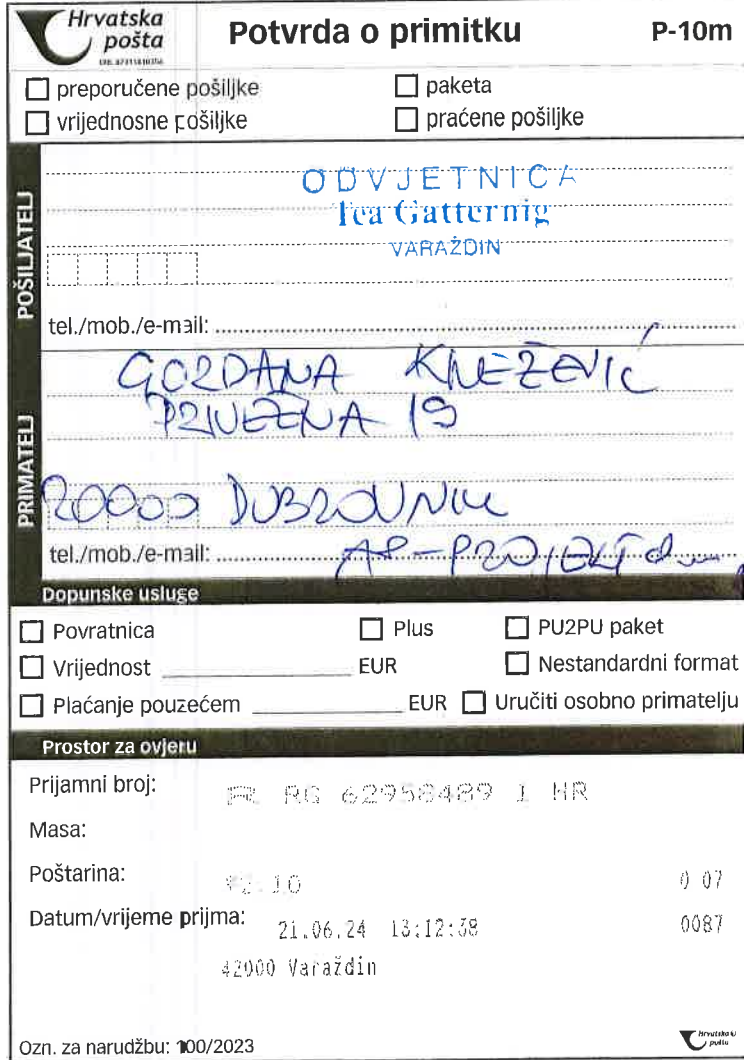 Hrvatska
pošta
Potvrda o primitku
P-10m
preporučene pošiljke
paketa
vrijednosne pošiljke
praćene pošiljke
POŠILJATELJ
ODVJETNICA
Iea Gatternig
VARAŽDIN
tel./mob./e-mail:
PRIMATELJ
GORDANA KNEŽEVIĆ
20000 DUBROVNIK
tel./mob./e-mail:
AP-PROJEKT
Dopunske usluge
Povratnica
Plus
PU2PU paket
Vrijednost EUR
Nestandardni format
Plaćanje pouzećem EUR
Uručiti osobno primatelju
Prostor za ovjeru
Prijamni broj: R RG 62958489 1 HR
Masa:
Poštarina: *2.10 0 07
Datum/vrijeme prijma: 21.06.24 13:12:38 0087
42000 Varaždin
Ozn. za narudžbu: 100/2023
Hrvatska
pošta